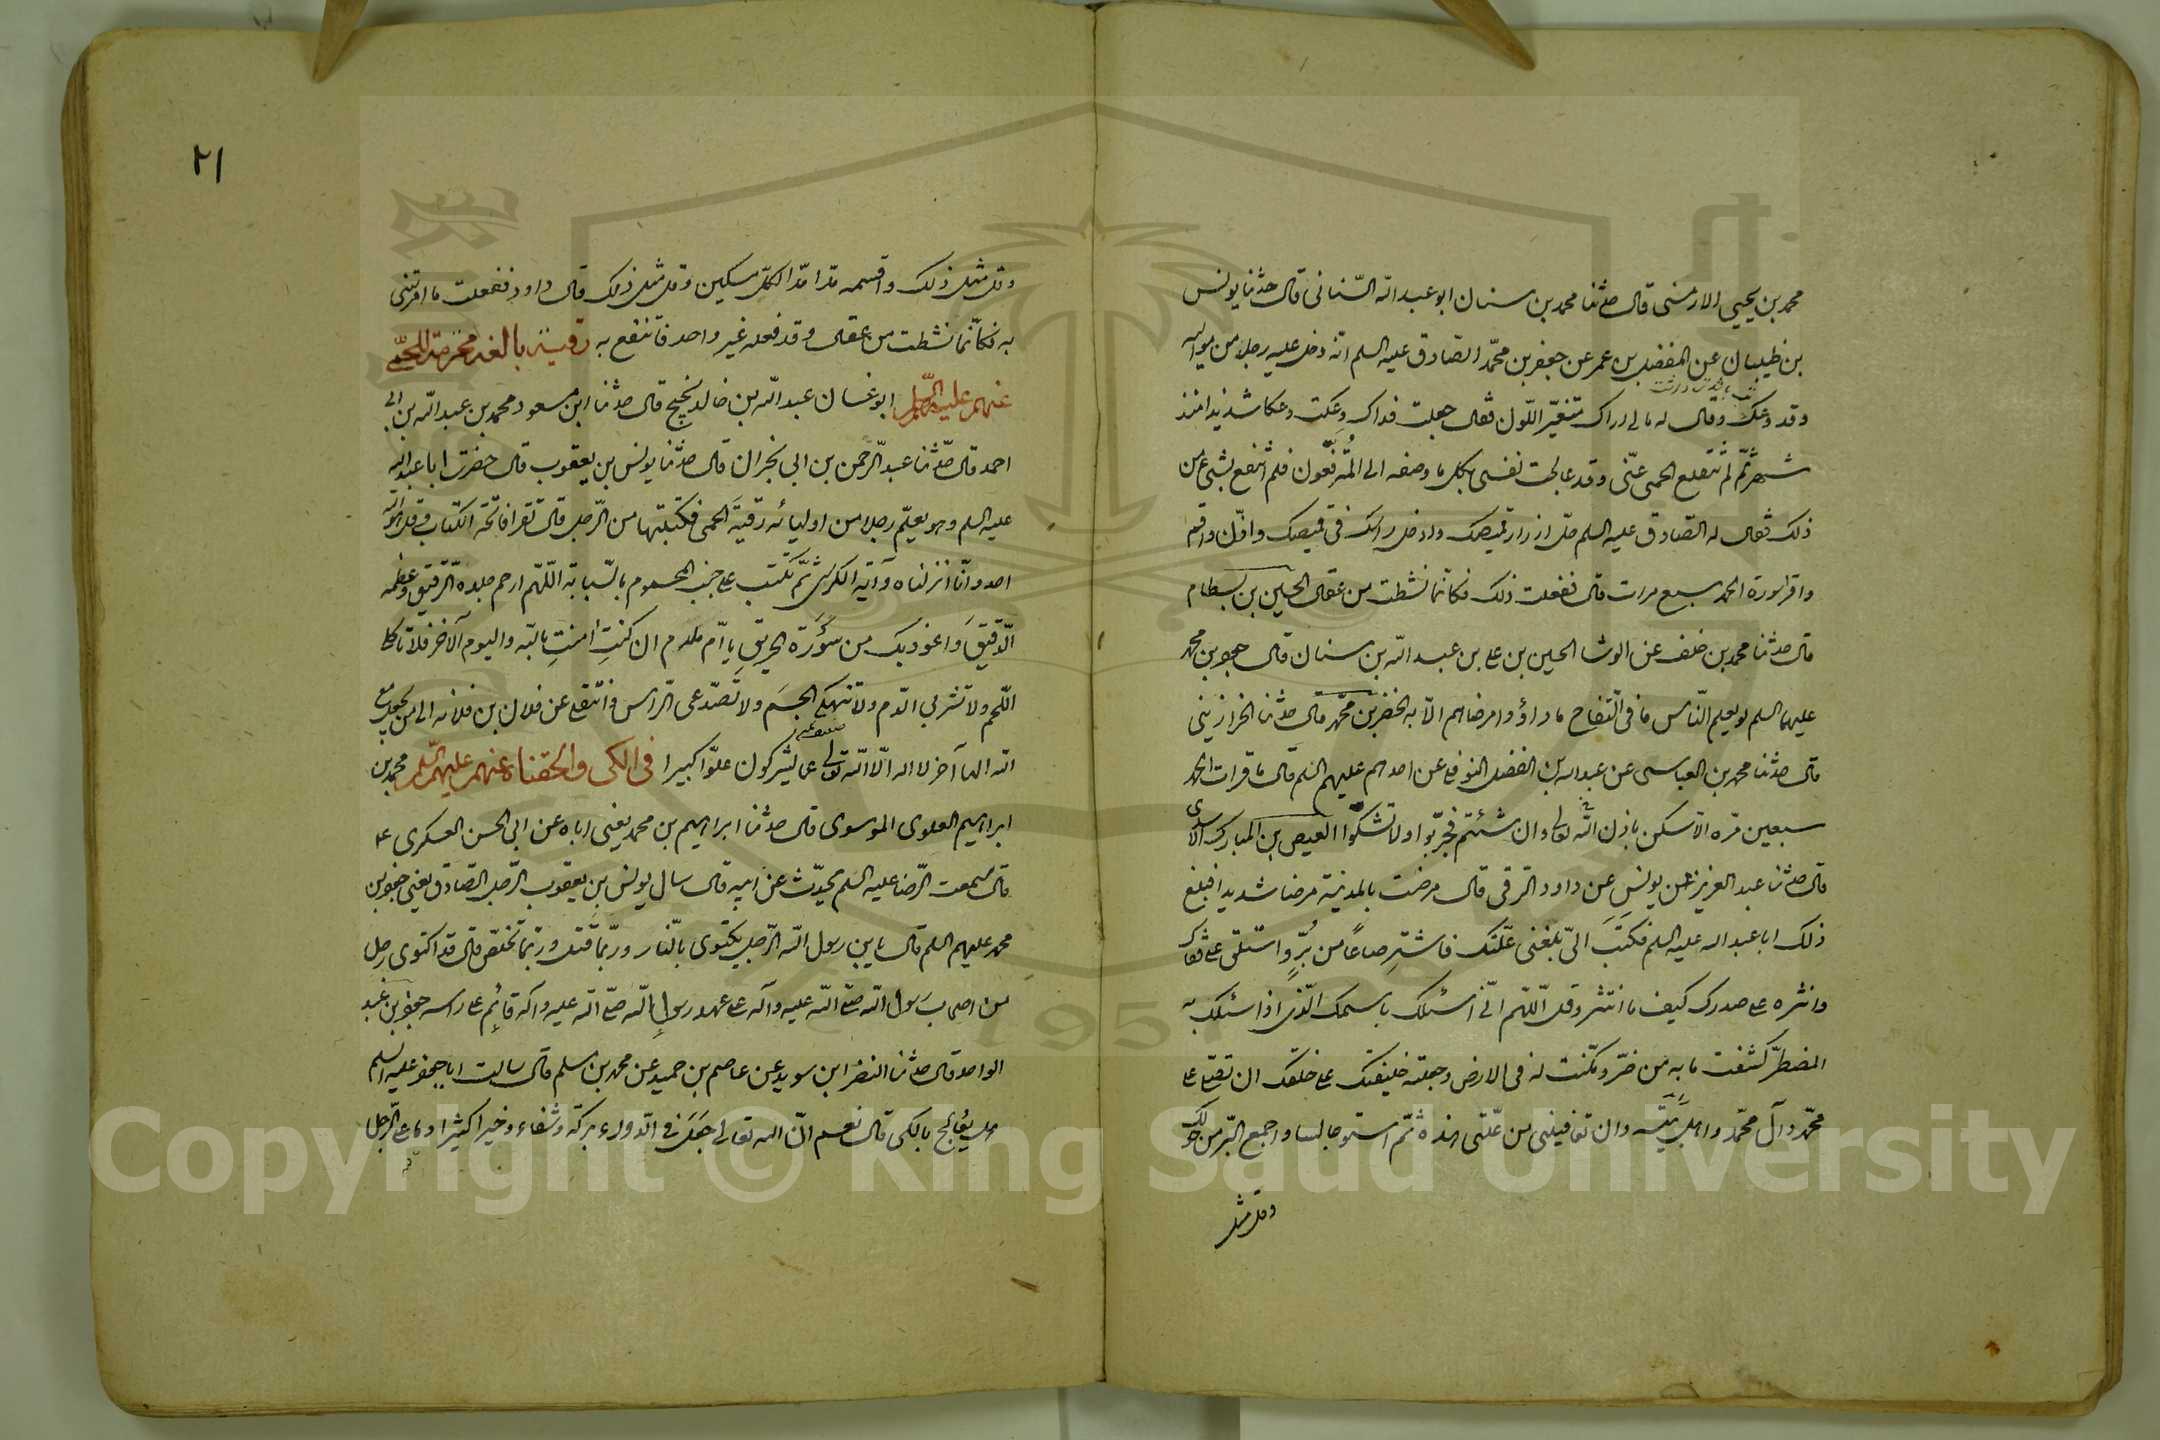 محمد بن يحيى الارمنى قال حدثنا محمد بن سنان ابو عبد الله السنانى قال حدثنا يونس
بن ظبيان عن المفضل بن عمر عن جعفر بن محمد الصادق عليه السلم انه دخل عليه رجل من مواليه
وقد وعك وقال له مالى اراك متغير اللون فقال جعلت فداك وعكت وعكا شديدا منذ
شهر ثم لم تنقلع الحمى عنى وقد عالجت نفسى بكل ما وصفه الى المترفعون فلم انتفع بشىء من
ذلك فقال له الصادق عليه السلم حل ازرار قميصك وادخل راسك فى قميصك واذن واقم
واقرا سورة الحمد سبع مرات قال ففعلت ذلك فكانما نشطت من عقال الحسين بن بسطام
قال حدثنا محمد بن خلف عن الوشا الحسين بن على بن عبد الله بن سنان قال جعفر بن محمد
عليهما السلم لو يعلم الناس ما فى التفاح ما داؤوا مرضاهم الا به الخضر بن محمد قال حدثنا الخرازينى
قال حدثنا محمد بن العباس عن عبد الله بن الفضل النوفلى عن احدهم عليهم السلم قال ما قرات الحمد
سبعين مرة الا سكن باذن الله تعالى وان شئتم فجربوا ولا تشكوا العيص بن المبارك الاسدى
قال حدثنا عبد العزيز عن يونس عن داود الرقى قال مرضت بالمدينة مرضا شديدا فبلغ
ذلك ابا عبد الله عليه السلم فكتب الى بلغنى علتك فاشتر صاعا من بر واستلق على قفاك
وانثره على صدرك كيف ما انتثر وقل اللهم انى اسئلك باسمك الذى اذا سئلك به
المضطر كشفت ما به من ضر ومكنت له فى الارض وجعلته خليفتك على خلقك ان تصلى على
محمد وآل محمد واهل بيته وان تعافينى من علتى هذه ثم استو جالسا واجمع البر من حولك
وقل مثل
٢١
وقل مثل ذلك واقسمه مدا مدا لكل مسكين وقل مثل ذلك قال داود ففعلت ما امرتنى
به فكانما نشطت من عقال وقد فعله غير واحد فانتفع به رقية بالغة مجربة للحمى
عنهم عليهم السلم ابو غسان عبد الله بن خالد نجيح قال حدثنا ابن مسعود محمد بن عبد الله بن ابى
احمد قال حدثنا عبد الرحمن بن ابى نجران قال حدثنا يونس بن يعقوب قال حضرت ابا عبد الله
عليه السلم وهو يعلم رجلا من اوليائه رقية الحمى فكتبتها من الرجل قال تقرا فاتحة الكتاب وقل هو الله
احد وانا انزلناه وآية الكرسى ثم تكتب على جنب المحموم بالسبابة اللهم ارحم جلده الرقيق وعظمه
الدقيق واعوذ بك من سورة الحريق يا ام ملدم ان كنت امنت بالله واليوم الآخر فلا تاكلى
اللحم ولا تشربى الدم ولا تنهكى الجسم ولا تصدعى الراس وانتقلى عن فلان بن فلانه الى من يجعل مع
الله الها آخر لا اله الا الله تعالى عما يشركون علوا كبيرا فى الكى والحقنة عنهم عليهم السلم محمد بن
ابراهيم العلوى الموسوى قال حدثنا ابراهيم بن محمد يعنى اباه عن ابى الحسن العسكرى ع
قال سمعت الرضا عليه السلم يحدث عن ابيه قال سال يونس بن يعقوب الرجل الصادق يعنى جعفر بن
محمد عليهم السلم قال يا بن رسول الله الرجل يكتوى بالنار وربما قتل وربما تخلص قال قد اكتوى رجل
من اصحاب رسول الله صلى الله عليه وآله على عهد رسول الله صلى الله عليه وآله قائم على راسه جعفر بن عبد
الواحد قال حدثنا النضر ابن سويد عن عاصم بن حميد عن محمد بن مسلم قال سالت ابا جعفر عليه السلم
هل يعالج بالكى قال نعم ان الله تعالى جعل فى الدواء بركة وشفاء وخيرا كثيرا وما على الرجل
1957
Copyright © King Saud University